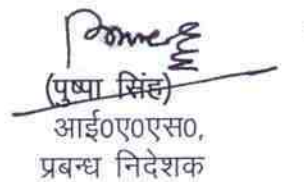 (पुष्पा सिंह)
आई0ए0एस0,
प्रबन्ध निदेशक